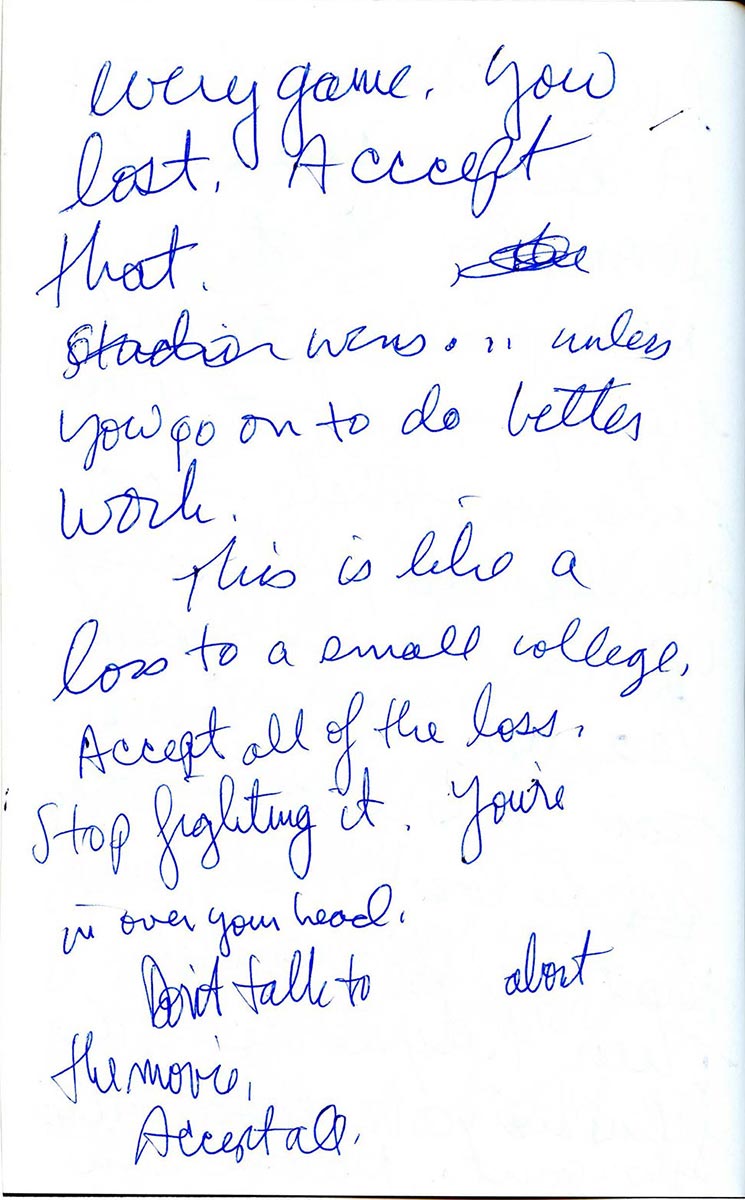 every game. You
lost. Acccept
that.
wins... unless
you go on to do better
work.
This is like a
loss to a small college.
Accept all of the loss.
Stop fighting it. You're
in over your head.
Don't talk to about
the movie.
Accept all.